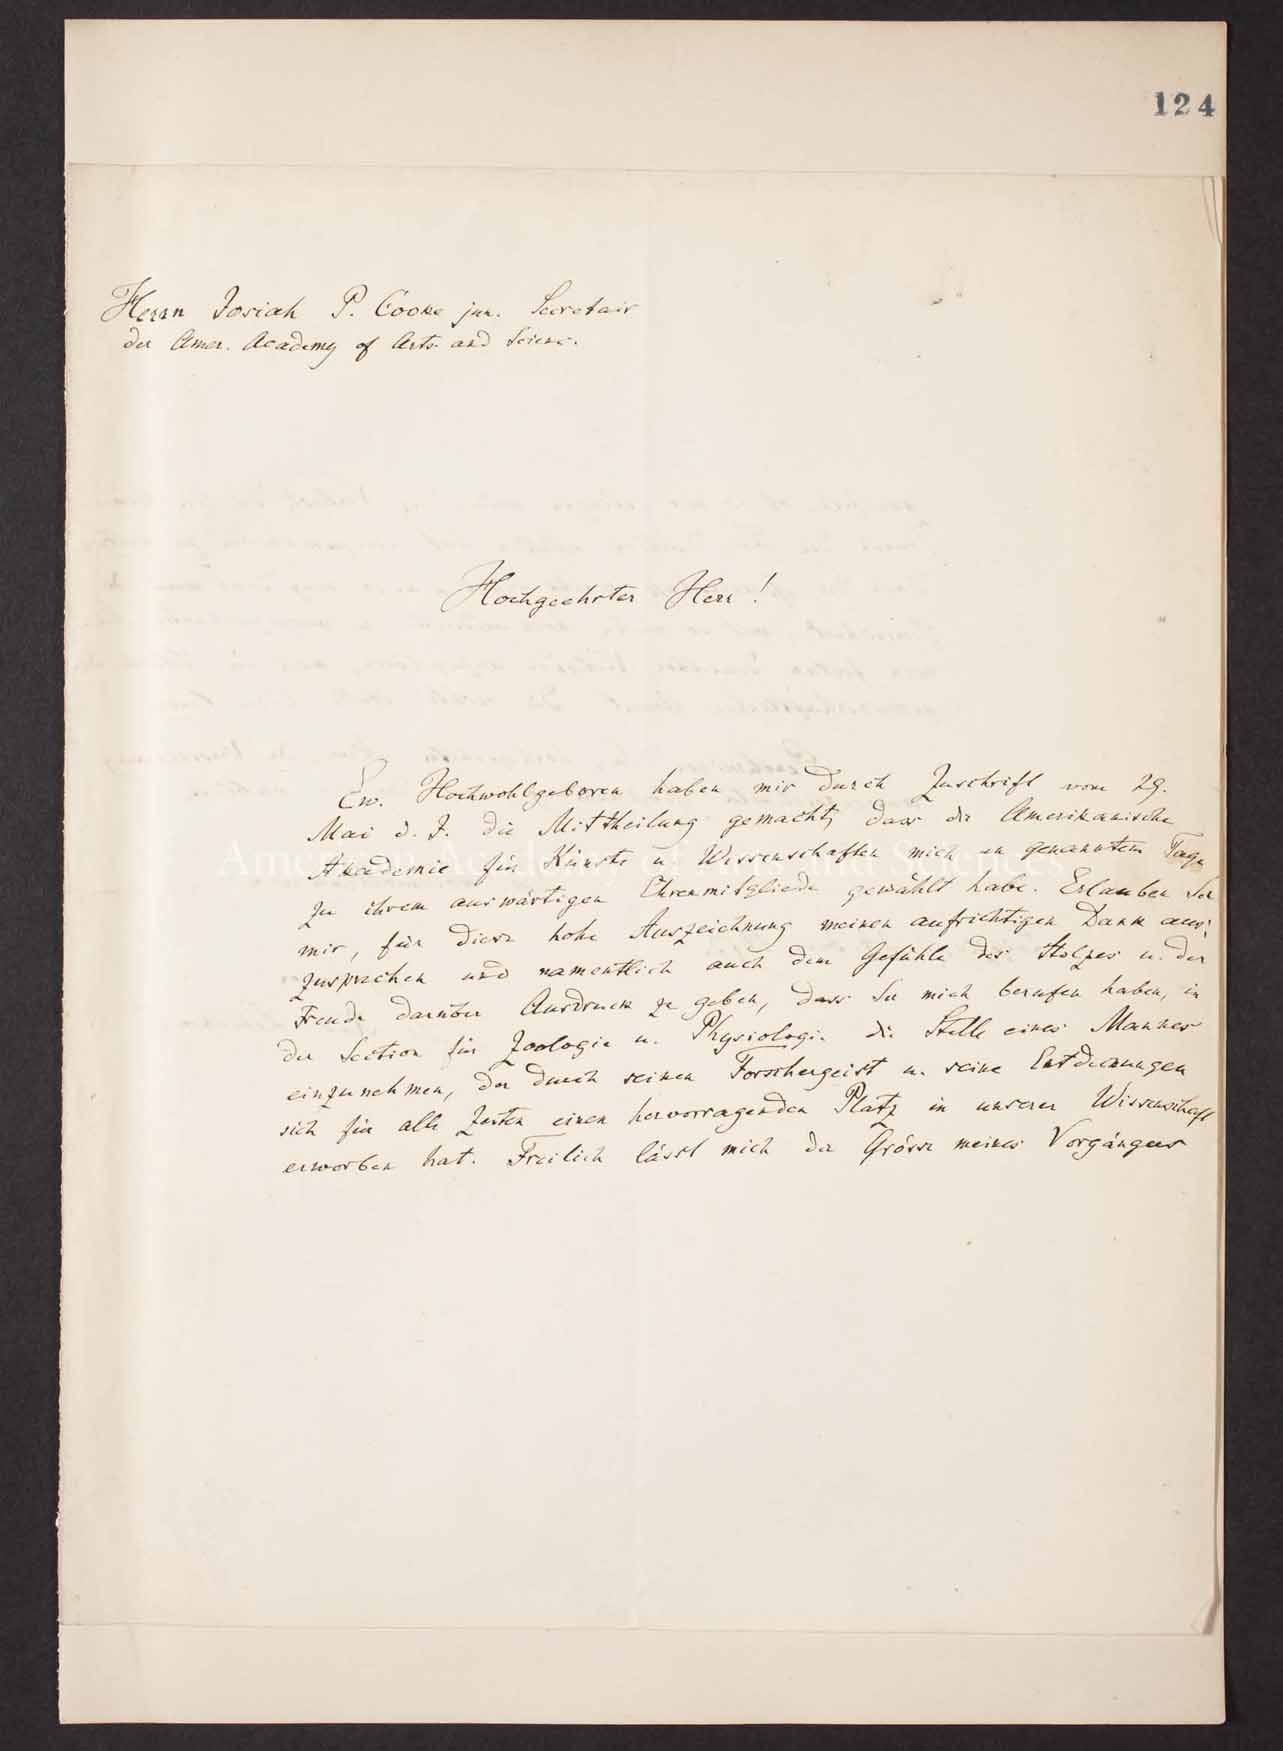 124
Herrn Josiah P. Cooke jun. Secretair
der Amer. Academy of Arts and Scienc.
Hochgeehrter Herr!
Ew. Hochwohlgeboren haben mir durch Zuschrift vom 29.
Mai d. J. die Mittheilung gemacht, dass die Amerikanische
Akademie für Künste u Wissenschaften mich an genanntem Tage
zu ihrem auswärtigen Ehrenmitgliede gewählt habe. Erlauben Sie
mir, für diese hohe Auszeichnung meinen aufrichtigen Dank aus-
zusprechen und namentlich auch dem Gefühle des Stolzes u. der
Freude darüber Ausdruck zu geben, dass Sie mich berufen haben, in
der Section für Zoologie u. Physiologie die Stelle eines Mannes
einzunehmen, der durch seinen Forschergeist u. seine Entdeckungen
sich für alle Zeiten einen hervorragenden Platz in unserer Wissenschaft
erworben hat. Freilich lässt mich die Grösse meines Vorgängers
American Academy of Arts and Sciences